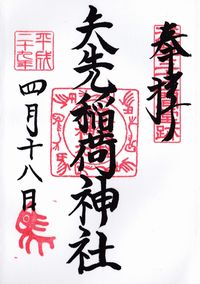 奉拝
矢先稲荷神社
平成
二十七年
四月十八日